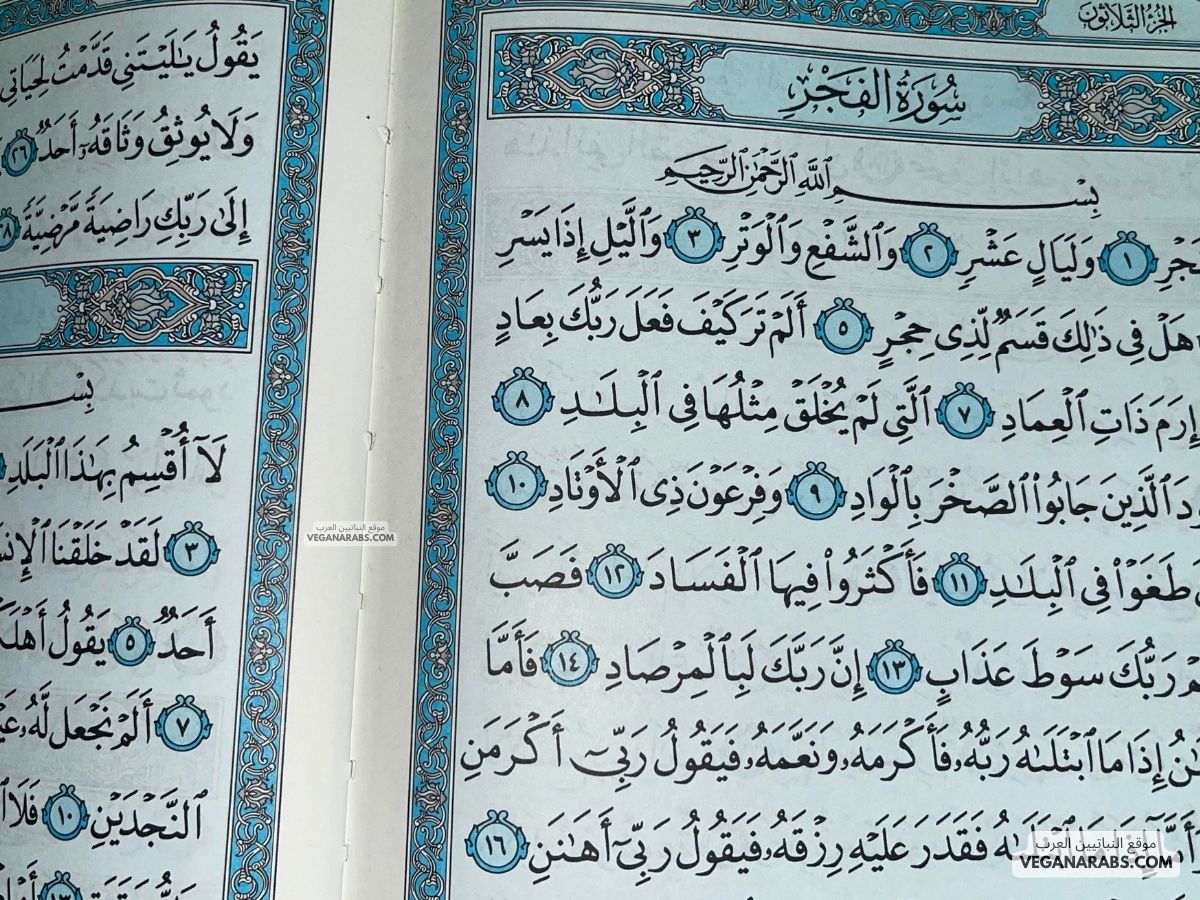 الجزء الثلاثون
سُورَةُ الفَجْرِ
بِسْمِ ٱللَّهِ ٱلرَّحْمَٰنِ ٱلرَّحِيمِ
١ وَلَيَالٍ عَشْرٍ ٢ وَٱلشَّفْعِ وَٱلْوَتْرِ ٣ وَٱلَّيْلِ إِذَا يَسْرِ
هَلْ فِى ذَٰلِكَ قَسَمٌ لِّذِى حِجْرٍ ٥ أَلَمْ تَرَ كَيْفَ فَعَلَ رَبُّكَ بِعَادٍ
إِرَمَ ذَاتِ ٱلْعِمَادِ ٧ ٱلَّتِى لَمْ يُخْلَقْ مِثْلُهَا فِى ٱلْبِلَٰدِ ٨
ٱلَّذِينَ جَابُوا۟ ٱلصَّخْرَ بِٱلْوَادِ ٩ وَفِرْعَوْنَ ذِى ٱلْأَوْتَادِ ١٠
طَغَوْا۟ فِى ٱلْبِلَٰدِ ١١ فَأَكْثَرُوا۟ فِيهَا ٱلْفَسَادَ ١٢ فَصَبَّ
رَبُّكَ سَوْطَ عَذَابٍ ١٣ إِنَّ رَبَّكَ لَبِٱلْمِرْصَادِ ١٤ فَأَمَّا
إِذَا مَا ٱبْتَلَىٰهُ رَبُّهُۥ فَأَكْرَمَهُۥ وَنَعَّمَهُۥ فَيَقُولُ رَبِّىٓ أَكْرَمَنِ
فَقَدَرَ عَلَيْهِ رِزْقَهُۥ فَيَقُولُ رَبِّىٓ أَهَٰنَنِ ١٦
يَقُولُ يَٰلَيْتَنِى قَدَّمْتُ لِحَيَاتِى
وَلَا يُوثِقُ وَثَاقَهُۥٓ أَحَدٌ ٢٦
إِلَىٰ رَبِّكِ رَاضِيَةً مَّرْضِيَّةً
بِسْ
لَآ أُقْسِمُ بِهَٰذَا ٱلْبَلَدِ
٣ لَقَدْ خَلَقْنَا
أَحَدٌ ٥ يَقُولُ
٧ أَلَمْ نَجْعَل لَّهُۥ
ٱلنَّجْدَيْنِ ١٠ فَلَا
موقع النباتيين العرب
VEGANARABS.COM
موقع النباتيين العرب
VEGANARABS.COM